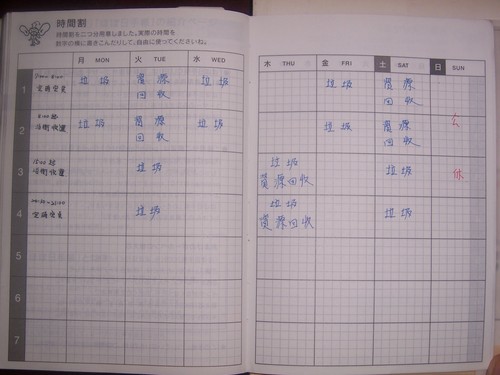 時間割
時間割を二つ分用意しました。実際の時間を
数字の横に書きこんだりして、自由に使ってくださいね。
月 MON 火 TUE 水 WED 木 THU 金 FRI 土 SAT 日 SUN
1
定時定點
垃圾 資源回收 垃圾 垃圾 資源回收
2
沿街收運
垃圾 資源回收 垃圾 垃圾 資源回收 公
3
沿街收運
垃圾 垃圾 資源回收 垃圾 休
4
定時定點
垃圾 垃圾 資源回收 垃圾
5
6
7